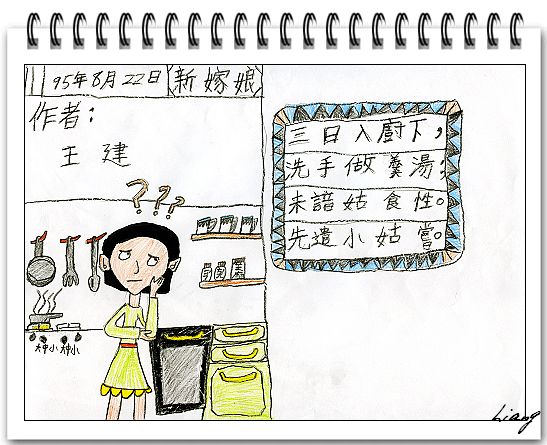 95年8月22日 新嫁娘
作者：
王建
三日入廚下，
洗手做羹湯；
未諳姑食性。
先遣小姑嘗。
???
大中小 大中小
Liang